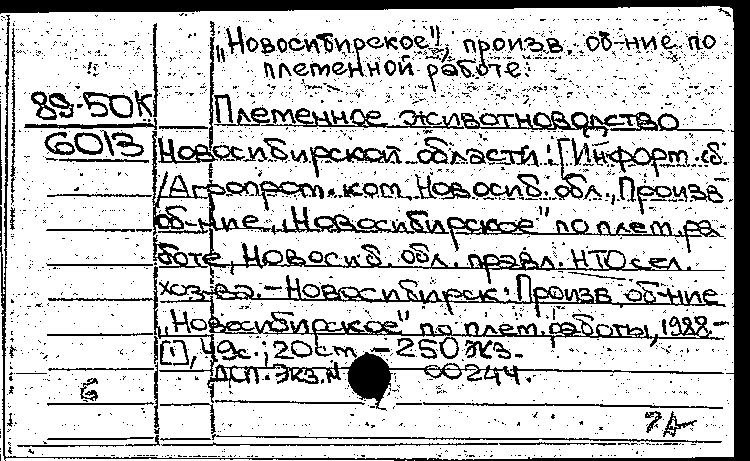 „Новосибирское", произв. об-ние по
племенной работе.
89-50К Племенное животноводство
6013 Новосибирской области: [Информ. сб.
/Агропром. ком. Новосиб. обл., Произв.
об-ние „Новосибирское" по плем. ра-
боте, Новосиб. обл. правл. НТО сел.
хоз-ва. - Новосибирск: Произв. об-ние
„Новосибирское" по плем. работы, 1988-
[1], 49с.; 20см - 250 экз.
ДСП. Экз. N 00244.
6